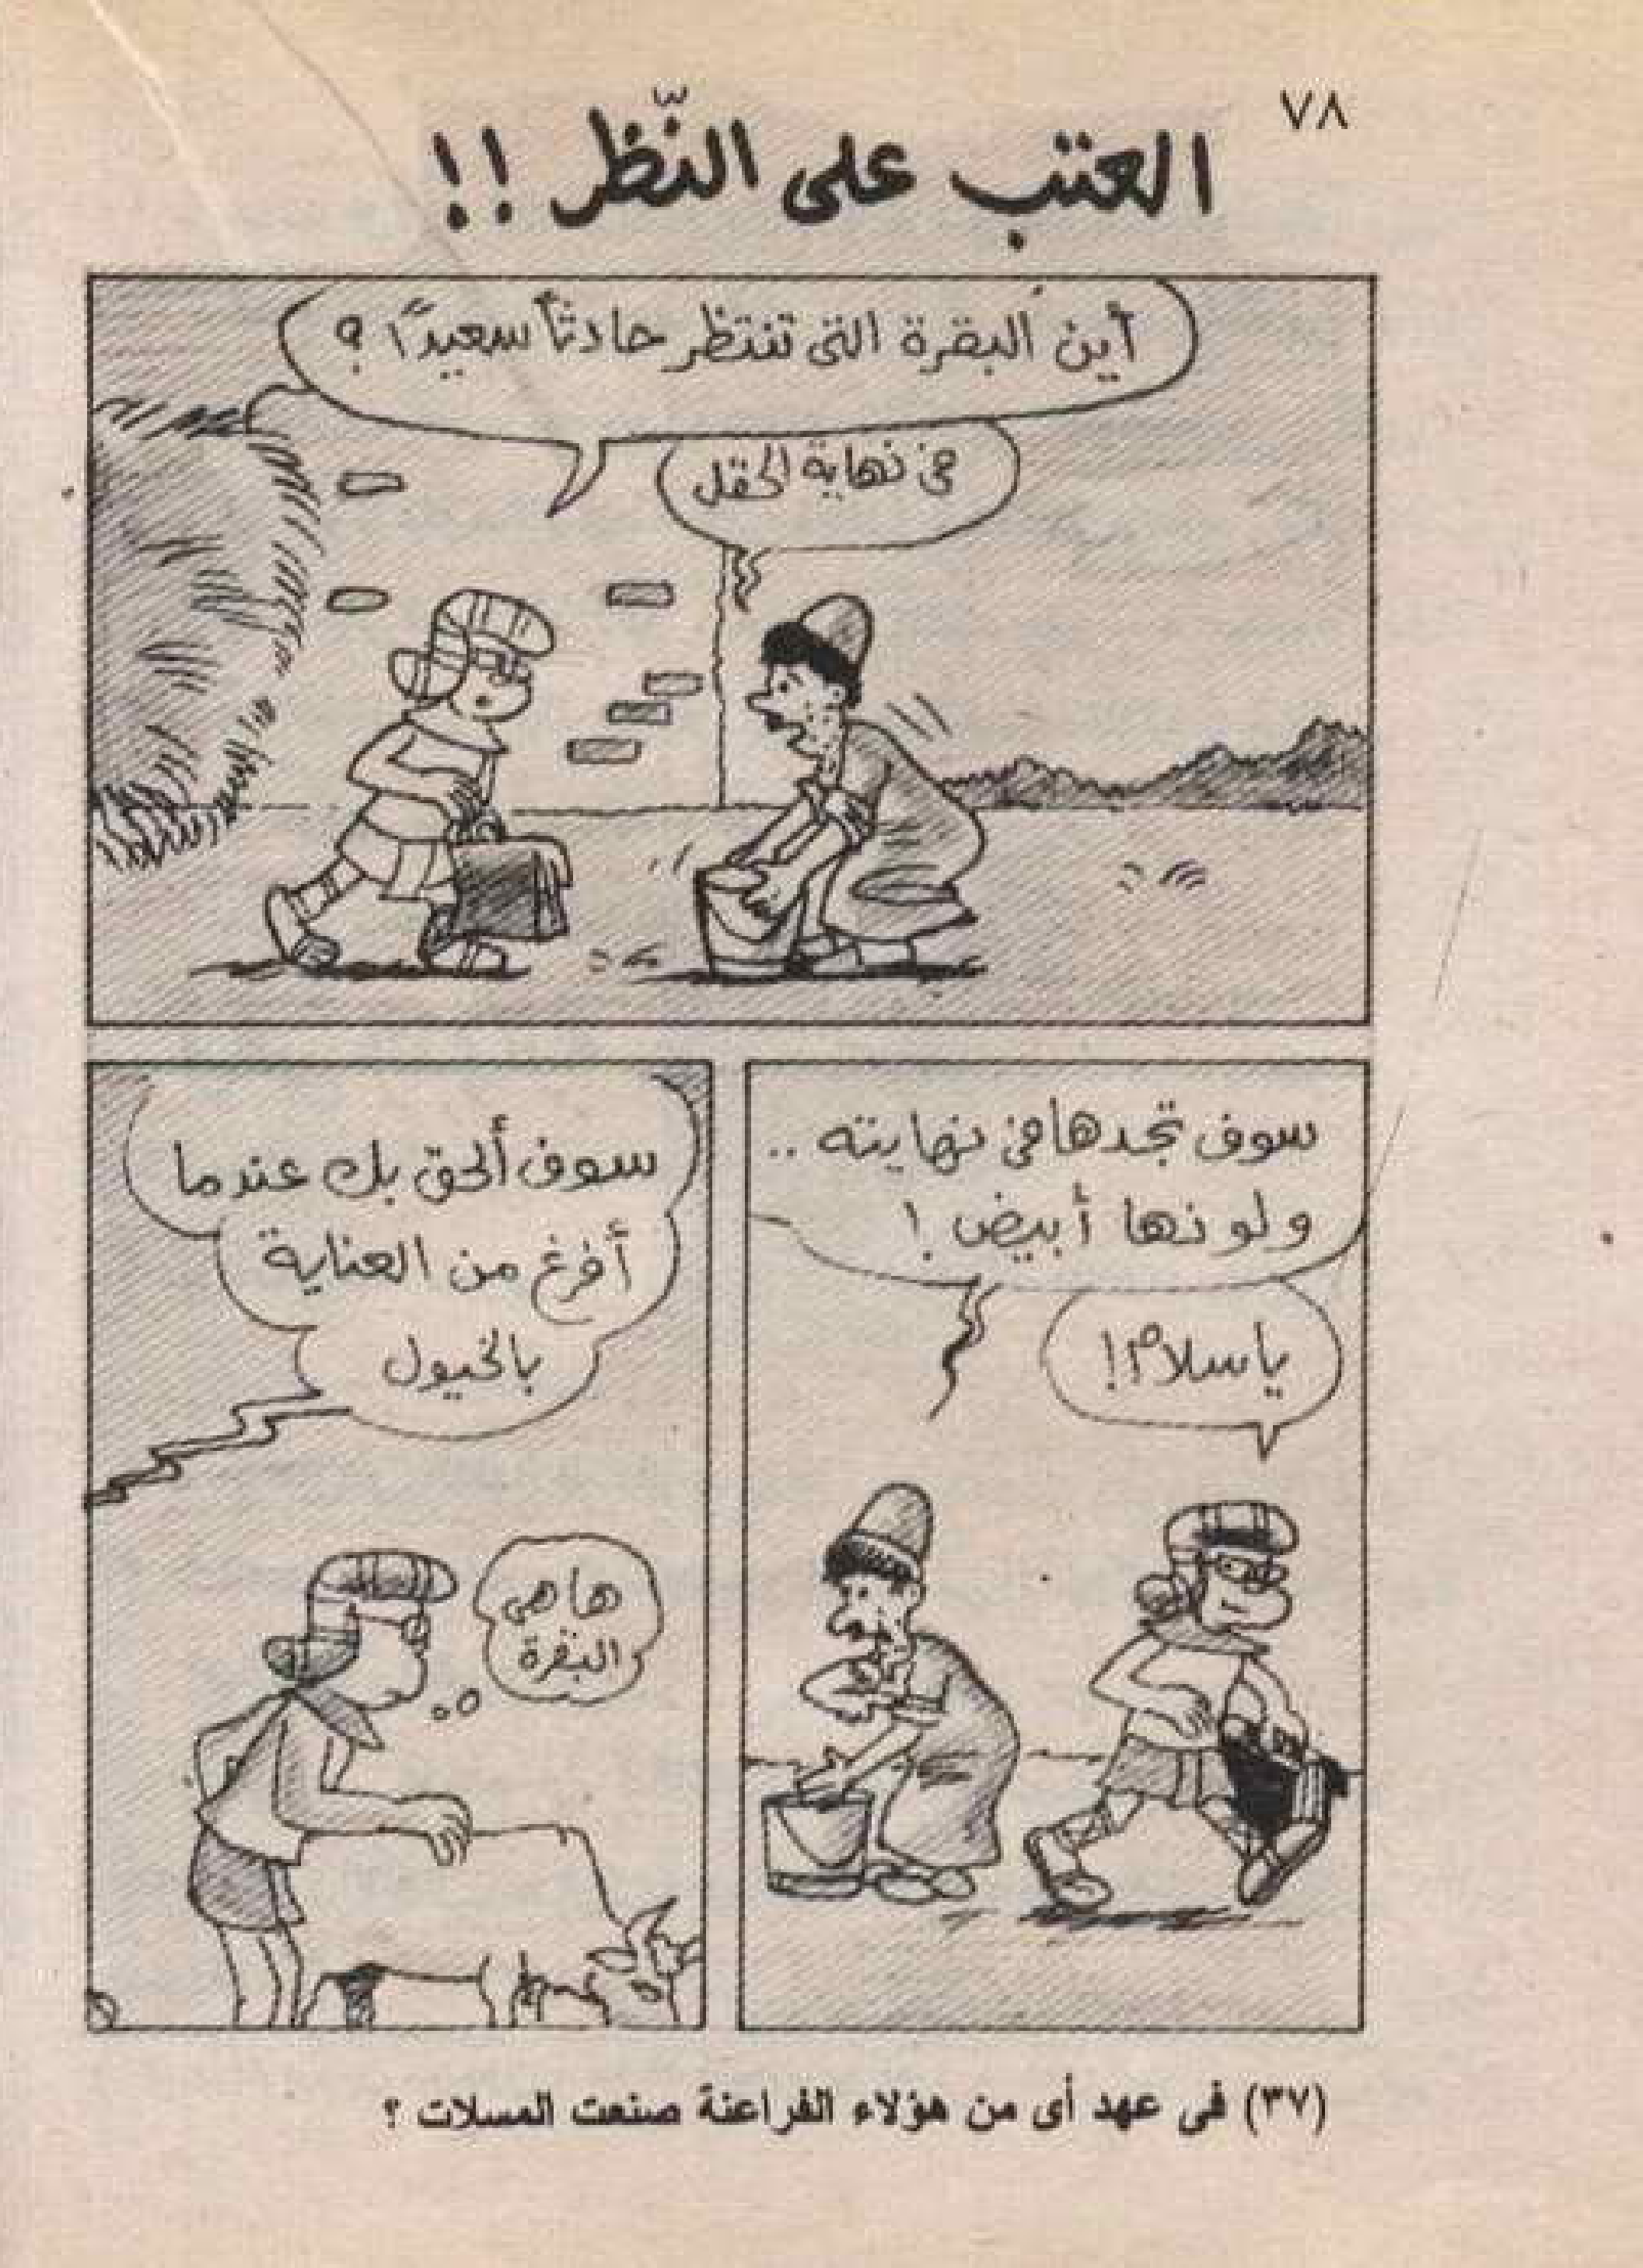 ٧٨
العتب على النّظر !!
أين البقرة التى تنتظر حادثاً سعيدًا ؟
فى نهاية الحقل
سوف تجدها فى نهايته ..
ولونها أبيض !
ياسلام !!
سوف ألحق بك عندما
أفرغ من العناية
بالخيول
ها هى
البقرة
(٣٧) فى عهد أى من هؤلاء الفراعنة صنعت المسلات ؟